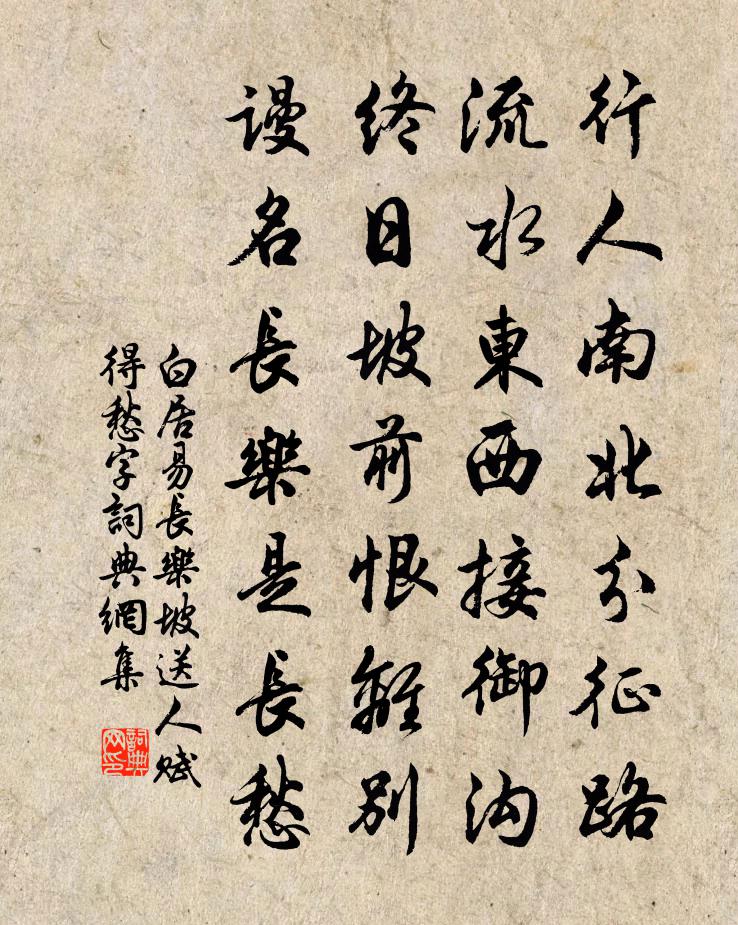 行人南北分征路
流水東西接御沟
终日坡前恨離别
謾名長樂是長愁
白居易長樂坡送人赋
得愁字詞典網集
詞典网印